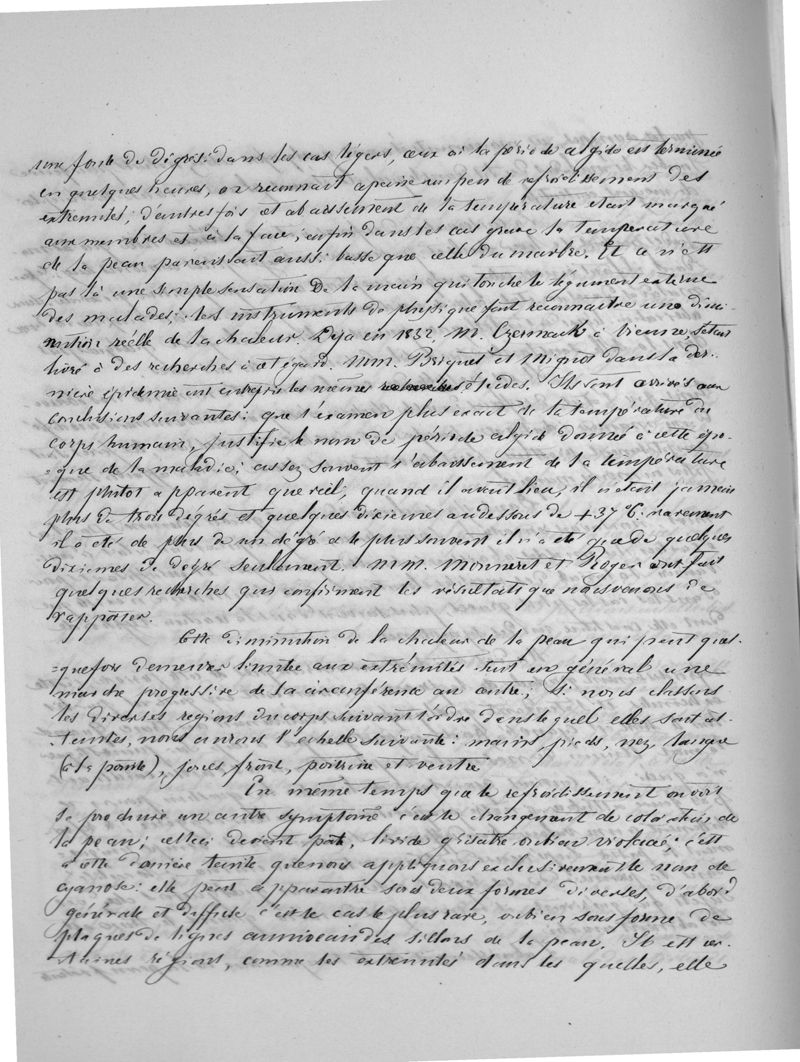 une foule de dégrés: dans les cas légers, ceux où la période algide est terminée
en quelques heures, on reconnait a peine un peu de refroidissement des
extremités; d'autres fois cet abaissement de la température etait marqué
aux membres et à la face; enfin dans les cas grave la temperature
de la peau paraissait aussi basse que celle du marbre. Et ce n'est
pas là une simple sensation De la main qui touche le tégument externe
des malades; les instruments de physique font reconnaitre une dimi-
nution réelle de la chaleur. Deja en 1832, M. Czermack à Vienne s'etait
livré à des recherches à cet égard. MM. Briquet et Mignot dans la der-
nière épidemie ont entrepris les mêmes études. Ils sont arrivés aux
conclusions suivantes: que l'éxamen plus exact de la température du
corps humain, justifie le nom de période algide donné à cette épo-
=que de la maladie; assez souvent l'abaissement de la température
est plutot apparent que réel; quand il avait lieu, il n'etait jamais
plus de trois dégrés et quelques dixiemes au dessous de +37°C. rarement
il a été de plus de un dégré et le plus souvent il n'a été que de quelques
dixiemes de dégré seulement. MM. Monneret et Roger ont fait
quelques recherches qui confirment les résultats que nous venons de
rapporter.
Cette diminution de la chaleur de la peau qui peut quel-
=quefois demeurer limitée aux extrémités suit en général une
marche progressive de la circonférence au centre; si nous classons
les diverses regions du corps suivant l'ordre dans lequel elles sont at-
teintes, nous aurons l'echelle suivante: mains, pieds, nez, langue
(à la pointe), joues, front, poitrine et ventre
En même temps que le refroidissement on voit
se produire un autre symptome c'est le changement de coloration de
la peau; celle ci devient pâle, livide grisatre ou bien violacée; c'est
a cette dernière teinte que nous appliquons exclusivement le nom de
cyanose: elle peut apparaitre sous deux formes diverses, d'abord
générale et diffuse c'est le cas le plus rare, ou bien sous forme de
plaques de lignes au niveau des sillons de la peau. Il est cer-
taines régions, comme les extremités dans les quelles, elle